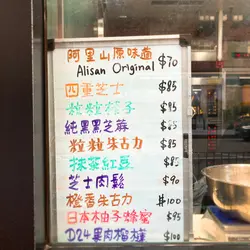 阿里山原味蛋 $70
Alisan Original
四重芝士 $85
粒粒榛子 $95
純黑黑芝麻 $85
粒粒朱古力 $85
抹茶紅豆 $85
芝士肉鬆 $90
橙香朱古力 $100
日本柚子蜂蜜 $95
D24果肉榴槤 $100